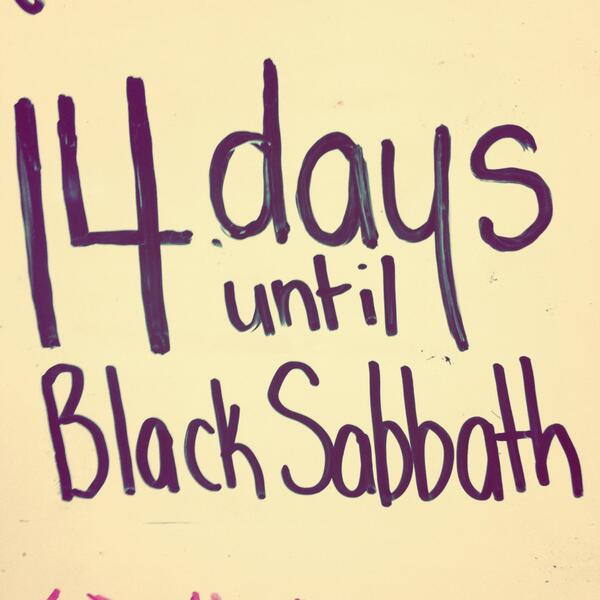 14 days
until
Black Sabbath